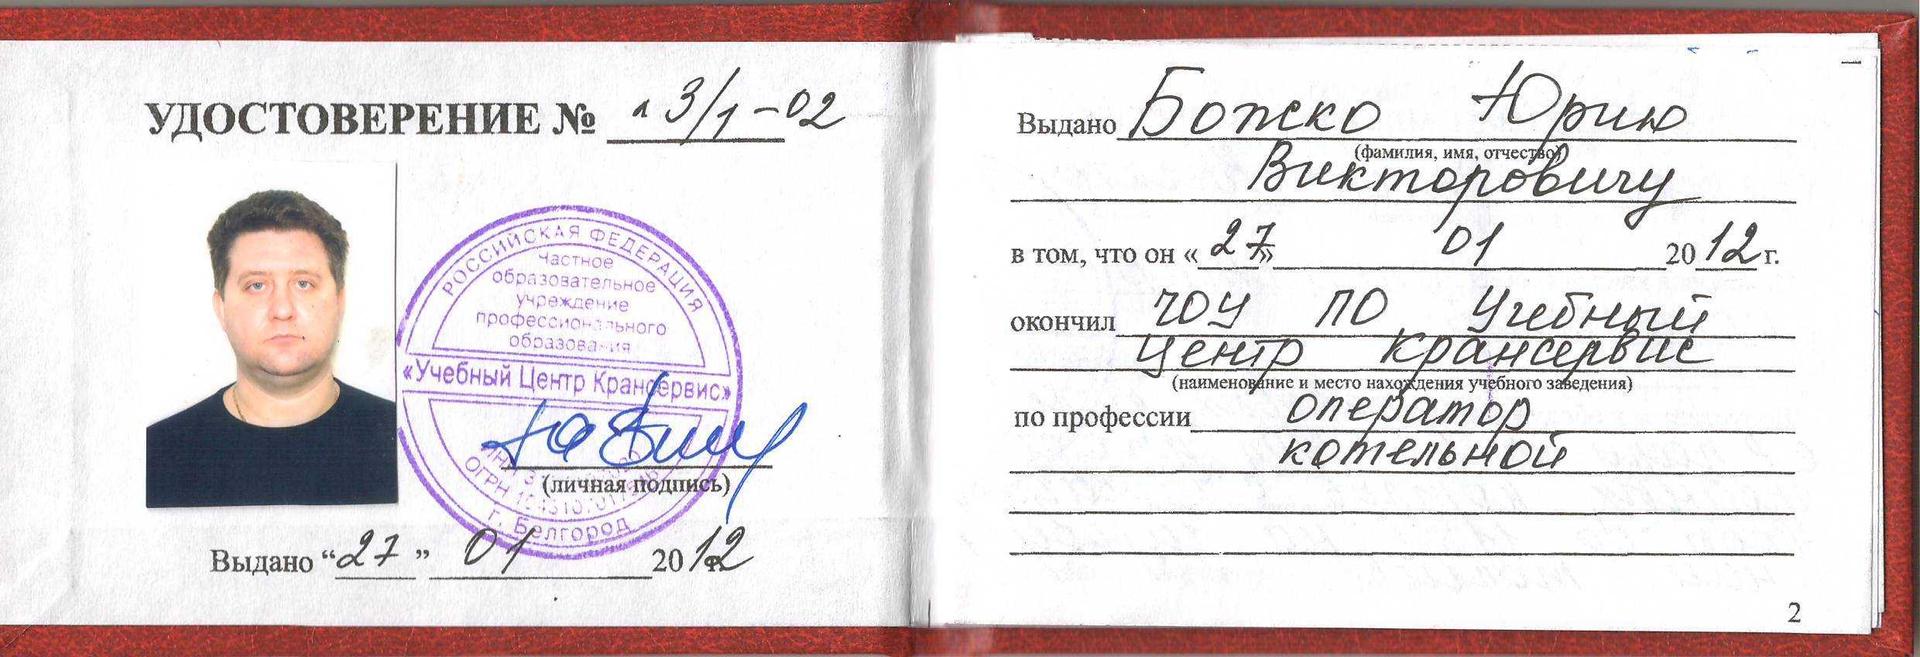 УДОСТОВЕРЕНИЕ № 3/1-02
РОССИЙСКАЯ ФЕДЕРАЦИЯ
Частное
образовательное
учреждение
профессионального
образования
«Учебный Центр Крансервис»
(личная подпись)
ИНН
ОГРН
г. Белгород
Выдано “27” 01 2012
Выдано Божко Юрию
(фамилия, имя, отчество)
Викторовичу
в том, что он «27» 01 2012 г.
окончил ЧОУ ПО Учебный
центр Крансервис
(наименование и место нахождения учебного заведения)
по профессии оператор
котельной
2